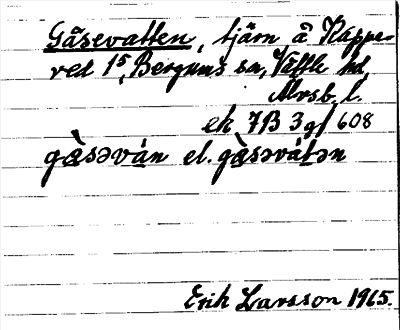 Gåsevatten, tjärn å Kapper-
red 1⁵, Bergums sn, Vättle hd
Älvsb. l.
ek 7B 3g/608
gɑ̀̀səván el. gɑ̀̀səvátən
Erik Larsson 1965.